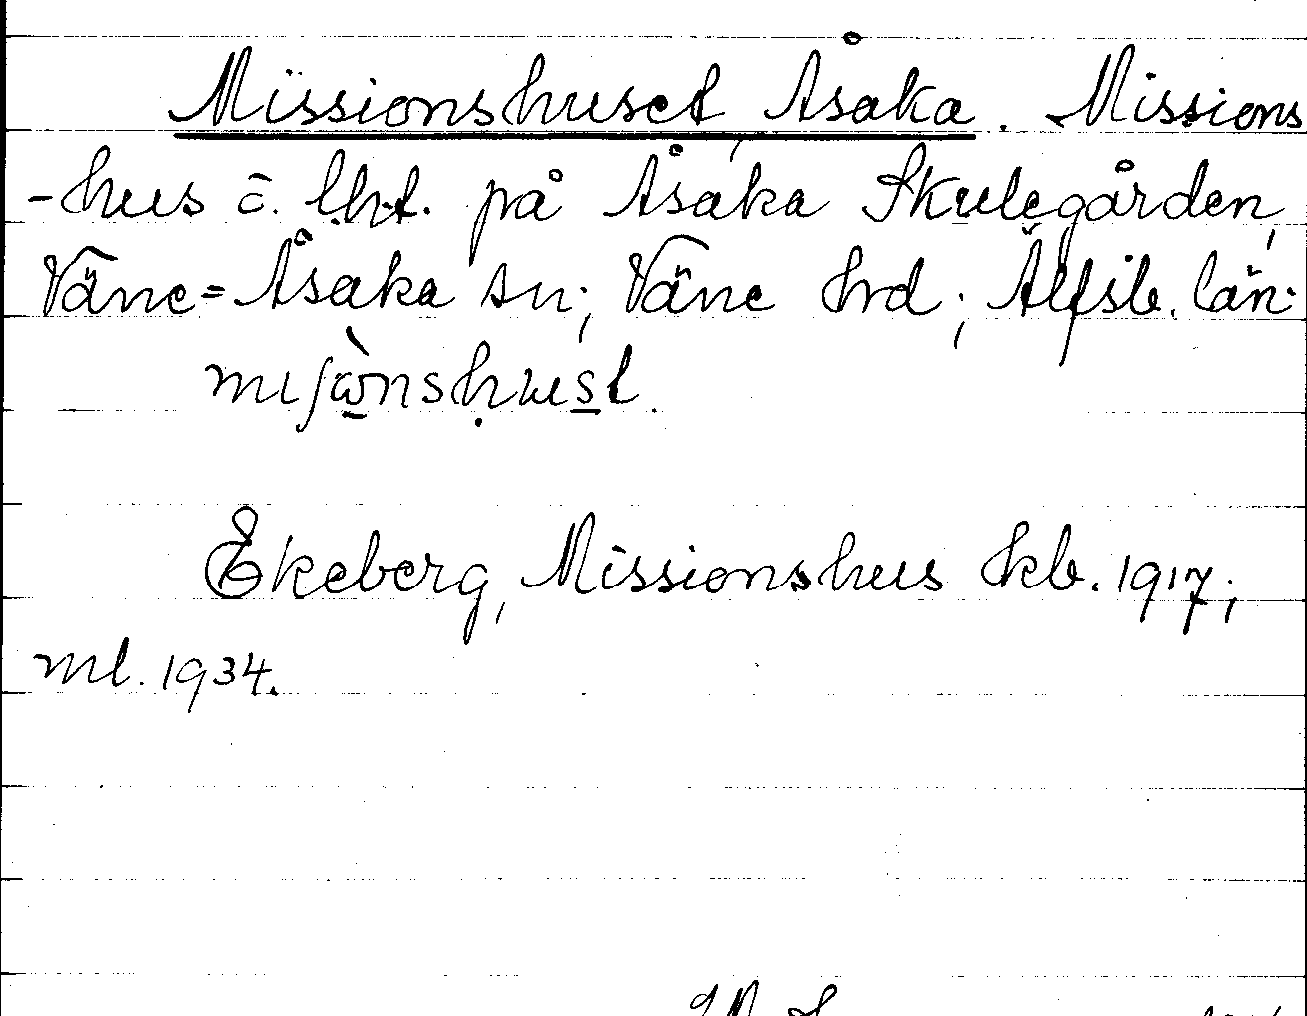 Missionshuset, Åsaka. Missions
-hus o. lht. på Åsaka Skulegården,
Väne=Åsaka sn; Väne hrd; Älfsb. län.
Ekeberg, Missionshus kb. 1917;
ml. 1934.